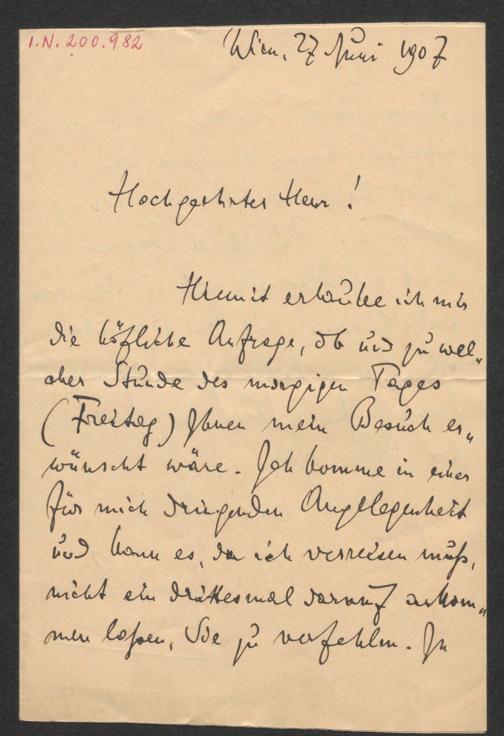 I.N. 200.982
Wien, 27 Juni 1907
Hochgeehrter Herr!
Hiemit erlaube ich mir
die höfliche Anfrage, ob und zu wel-
cher Stunde des morgigen Tages
(Freitag) Ihnen mein Besuch er„
wünscht wäre. Ich komme in einer
für mich dringenden Angelegenheit
und kann es, da ich verreisen muß,
nicht ein drittesmal darauf ankom„
men laßen, Sie zu verfehlen. In